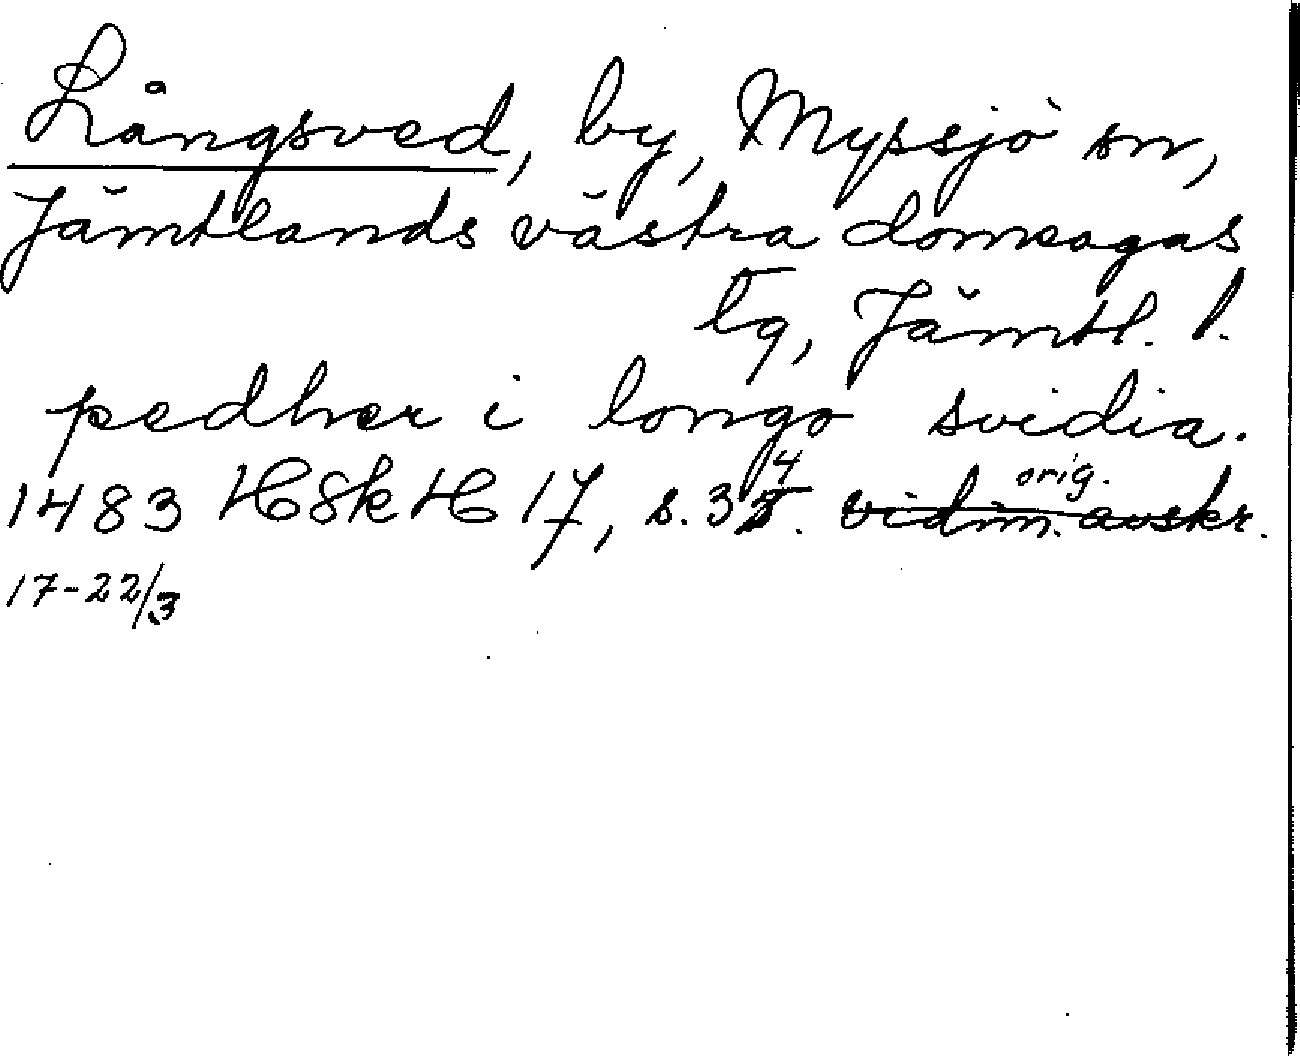 Långsved, by, Myssjö sn,
Jämtlands västra domsagas
tg, Jämtl. l.
pedher i longo svidia.
1483 HSkH 17, s. 34. orig.
17-22/3